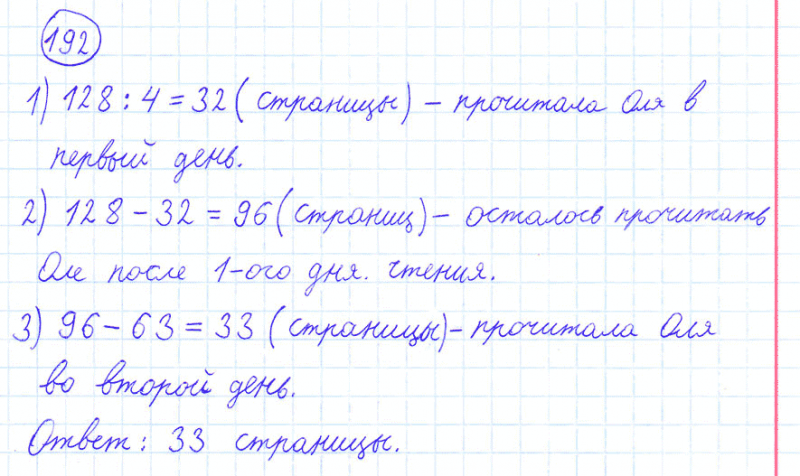 192
1) 128 : 4 = 32 ( страницы) – прочитала Оля в
первый день.
2) 128 – 32 = 96 (страниц) – осталось прочитать
Оле после 1-ого дня. чтения.
3) 96 – 63 = 33 (страницы) – прочитала Оля
во второй день.
Ответ: 33 страницы.